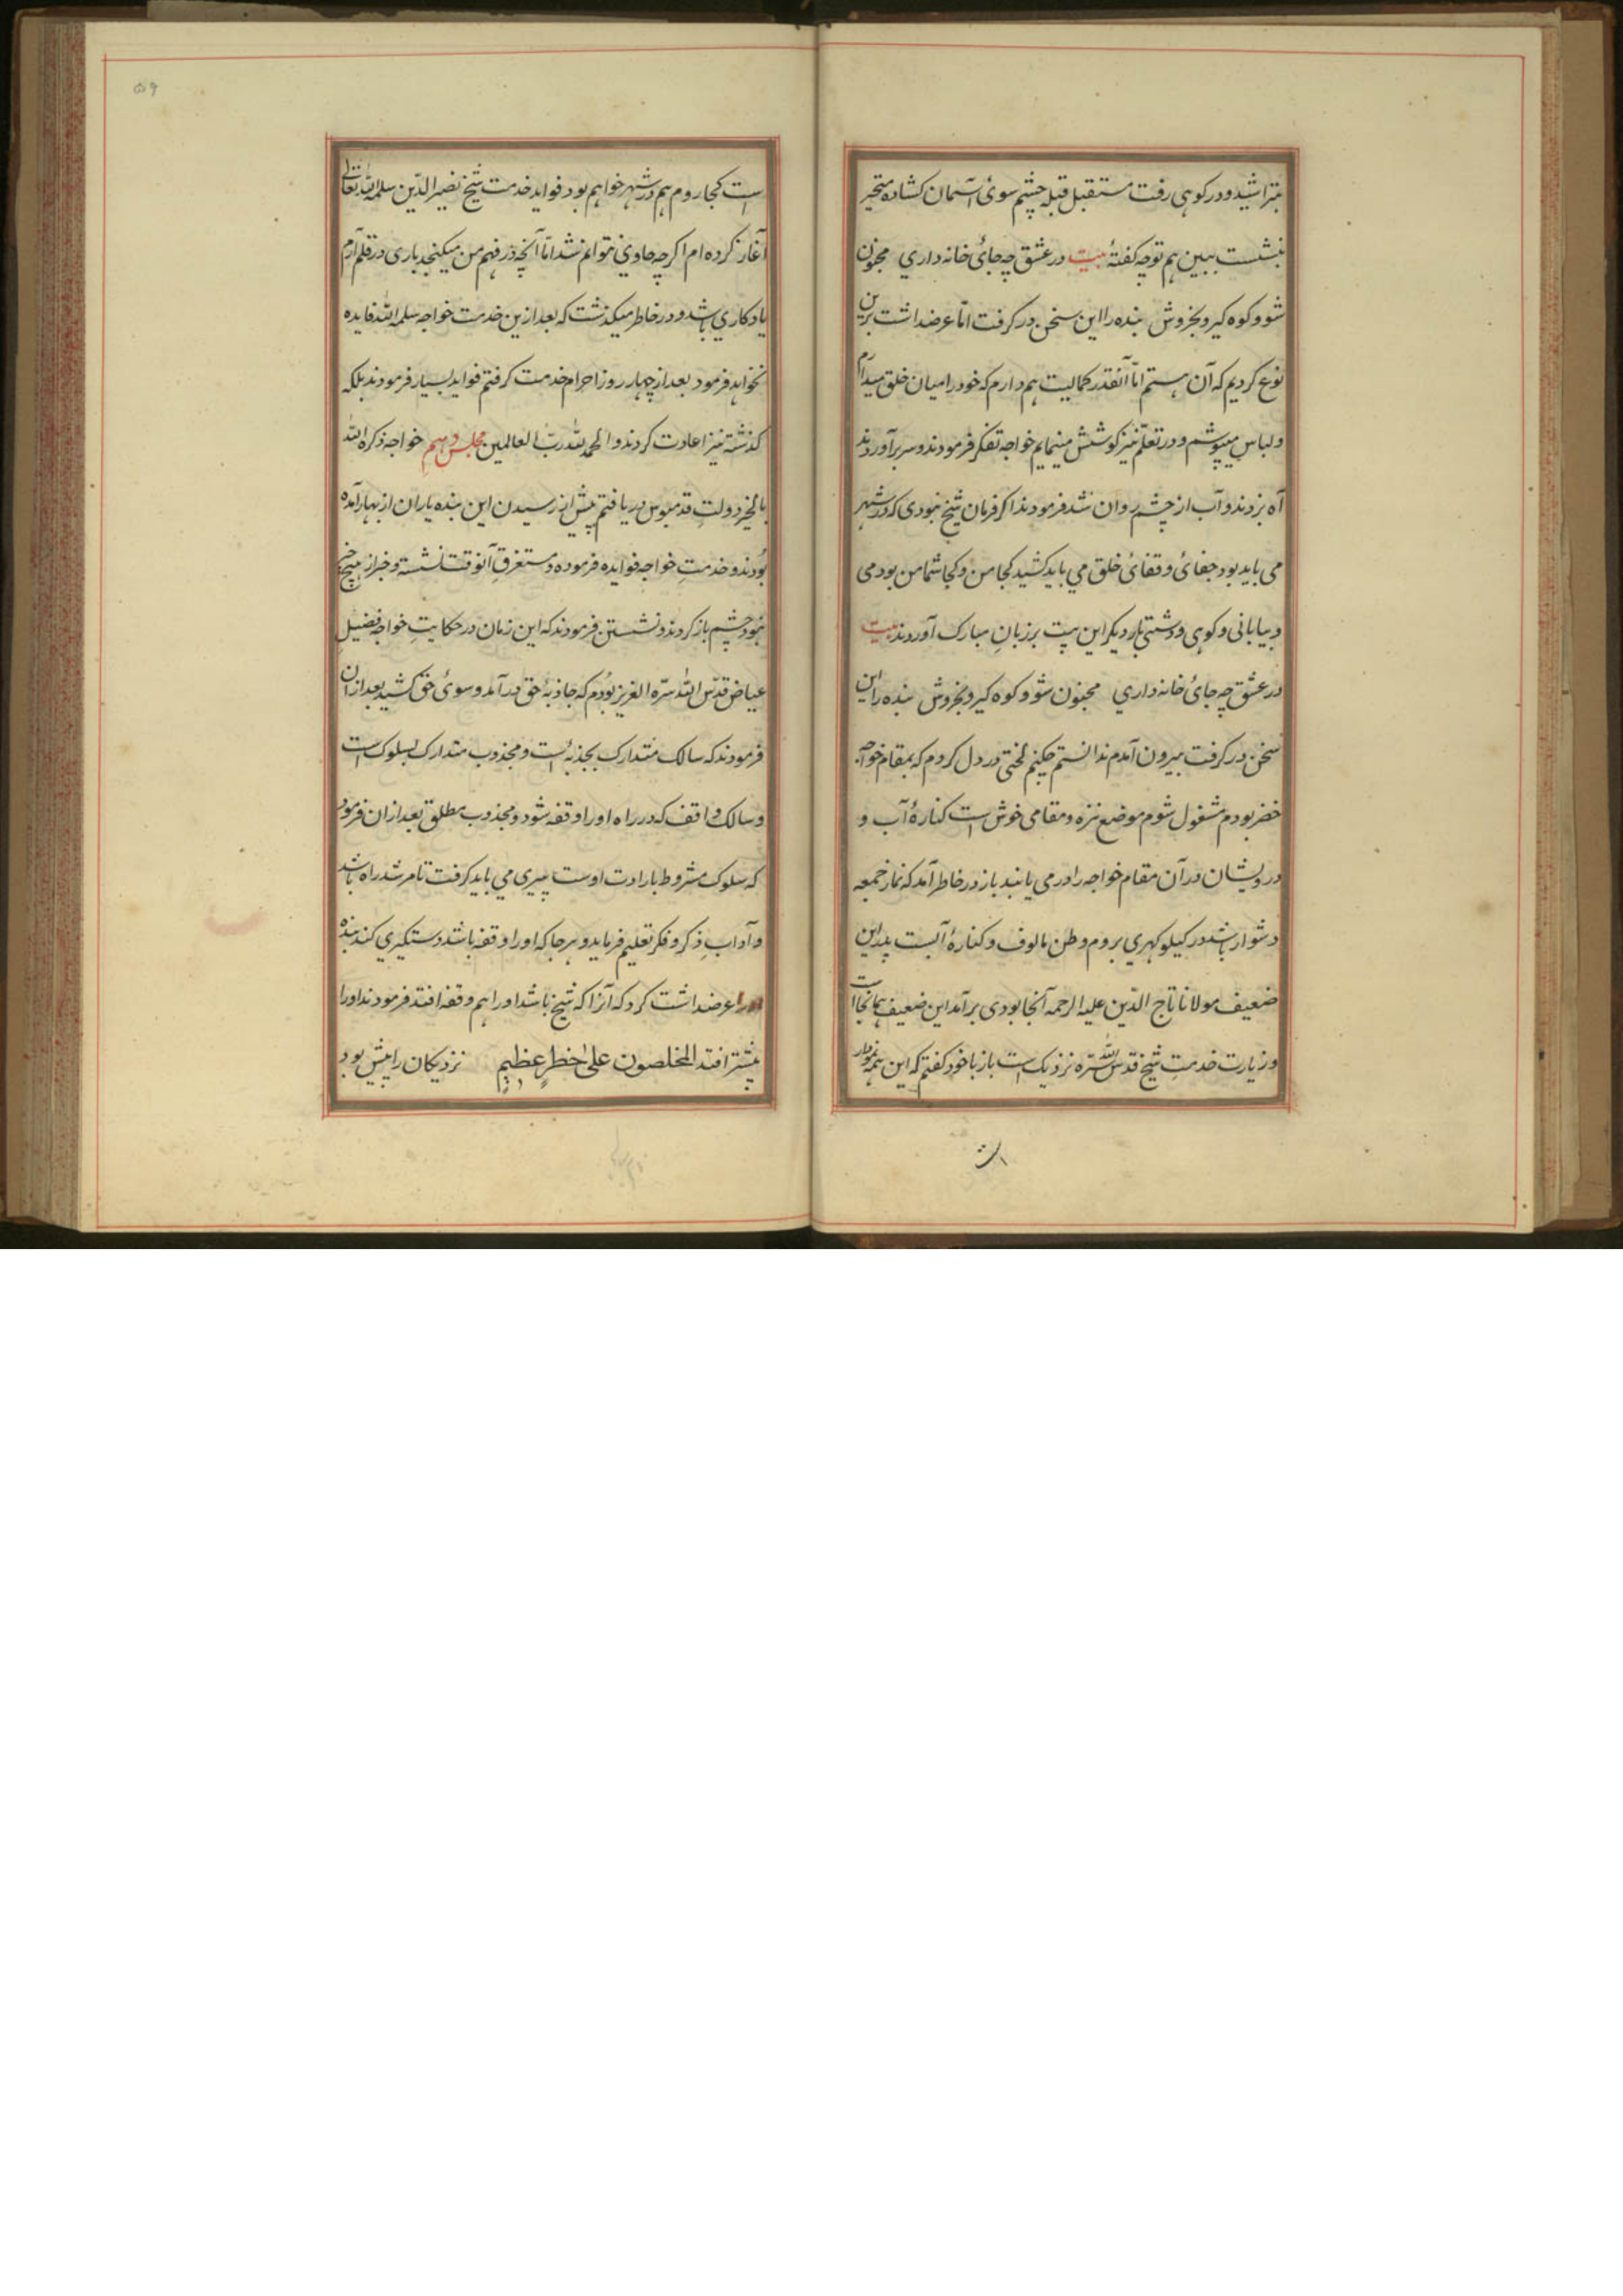 بتراشید و در کوهی رفت مستقبل قبله چشم سوئ آسمان کشاده متحیر
بنشست ببین هم تو چه کفتهٔ بیت در عشق چه جائ خانه داری مجنون
شو و کوه کیر و بخروش بنده را این سخن در کرفت امّا عرضداشت برین
نوع کردیم که آن هستم امّا آنقدر کمالیت هم دارم که خود را میان خلق میدارم
و لباس میپوشم و در تعلّم نیز کوشش مینمایم خواجه تفکر فرمودند و سر برآوردند
آه بزدند و آب از چشم روان شد فرمودند اکر فرمان شیخ نبودی که در شهر
می باید بود جفائ و قفائ خلق می باید کشید کجا من و کجا شما من بودمی
و بیابانی و کوهی و دشتی بار دیکر این بیت بر زبانِ مبارک آوردند بیت
در عشق چه جائ خانه داری مجنون شو و کوه کیر و بخروش بنده را این
سخن در کرفت بیرون آمدم ندانستم چکنم لختی در دل کردم که بمقام خواجه
خضر بودم مشغول شوم موضع نزه و مقامی خوش است کنارهٔ آب و
درویشان در آن مقام خواجه را در می یابند باز در خاطر آمد که نماز جمعه
دشوار باشد در کیلوکهری بروم وطن مالوف و کنارهٔ آبست پدر این
ضعیف مولانا تاج الدّین علیه الرحمه آنجا بودی برآمد این ضعیف همانجا است
و زیارت خدمتِ شیخ قدس اللّه سرّه نزدیک است باز با خود کفتم که این همه نمودار
است کجا روم هم در شهر خواهم بود فواید خدمت شیخ نصیر الدّین سلمه اللّه تعالی
آغاز کرده ام اکر چه حاوی نتوانم شد امّا آنچه در فهم من میکنجد باری در قلم آرم
یادکاری باشد و در خاطر میکذشت که بعد ازین خدمت خواجه سلمه اللّه فایده
نخواهد فرمود بعد از چهار روز احرام خدمت کرفتم فواید بسیار فرمودند بلکه
کذشته نیز اعادت کردند و الحمد للّه ربّ العالمین مجلس دهم خواجه ذکره اللّه
بالخیر دولتِ قدمبوس دریافتم پیش از رسیدن این بنده یاران از بهار آمده
بودند و خدمتِ خواجه فوایده فرموده و مستغرقِ آنوقت نشسته و خبر از هیچ چیز
نبود چشم باز کردند و نشستن فرمودند که این زمان در حکایتِ خواجه فضیلِ
عیاض قدّس اللّه سرّه العزیز بودم که جاذبهٔ حق درآمد و سوئ حق کشید بعد از آن
فرمودند که سالک متدارک بجذبه است و مجذوب متدارک بسلوک است
و سالک واقف که در راه او را وقفه شود و مجذوب مطلق بعد از آن فرمود
که سلوک مشروط بارادت اوست پیری می باید کرفت تا مرشد راه باشد
و آدابِ ذکر و فکر تعلیم فرماید و هر جا که او را وقفه باشد دستکیری کند بنده
را عرضداشت کرد که آنرا که شیخ باشد او را هم وقفه افتد فرمودند او را
بیشتر افتد المخلصون علی خطرٍ عظیم نزدیکان را بیش بود